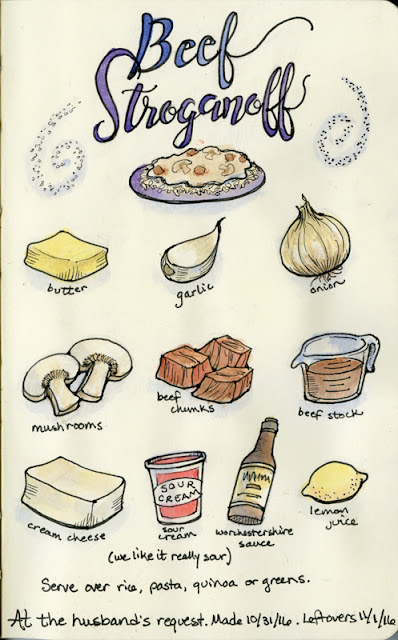 Beef
Stroganoff
butter
garlic
onion
mushrooms
beef
chunks
beef stock
cream cheese
SOUR
CREAM
sour
cream
worchestershire
sauce
lemon
juice
(we like it really sour)
Serve over rice, pasta, quinoa or greens.
At the husband's request. Made 10/31/16. Leftovers 11/1/16